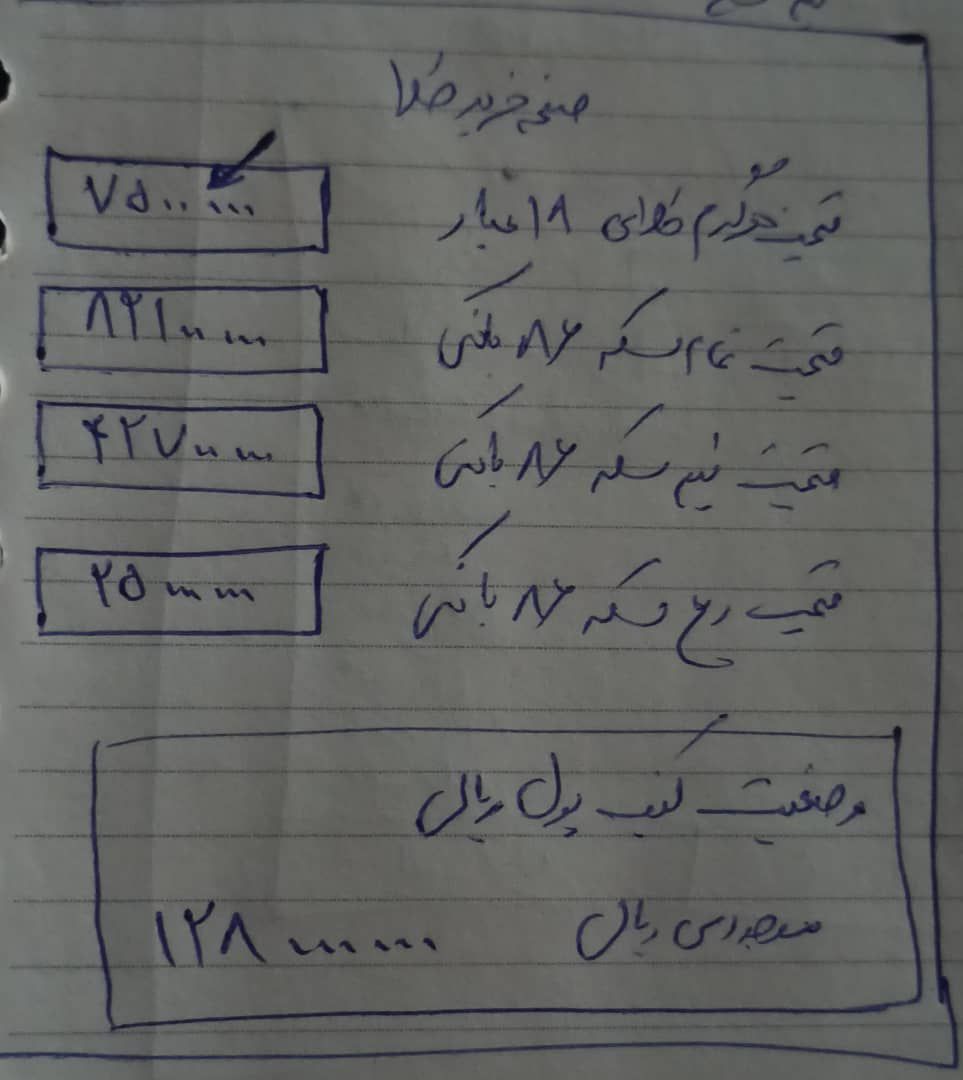 صفحه خرید طلا
قیمت هر گرم طلای ۱۸ عیار ۷۵۰۰۰۰۰۰
قیمت تمام سکه ۸۶ بانکی ۸۲۱۰۰۰۰۰۰
قیمت نیم سکه ۸۶ بانکی ۴۲۷۰۰۰۰۰۰
قیمت ربع سکه ۸۶ بانکی ۲۵۰۰۰۰۰۰۰
وضعیت کیف پول ریالی
موجودی ریال ۱۲۸۰۰۰۰۰۰۰۰